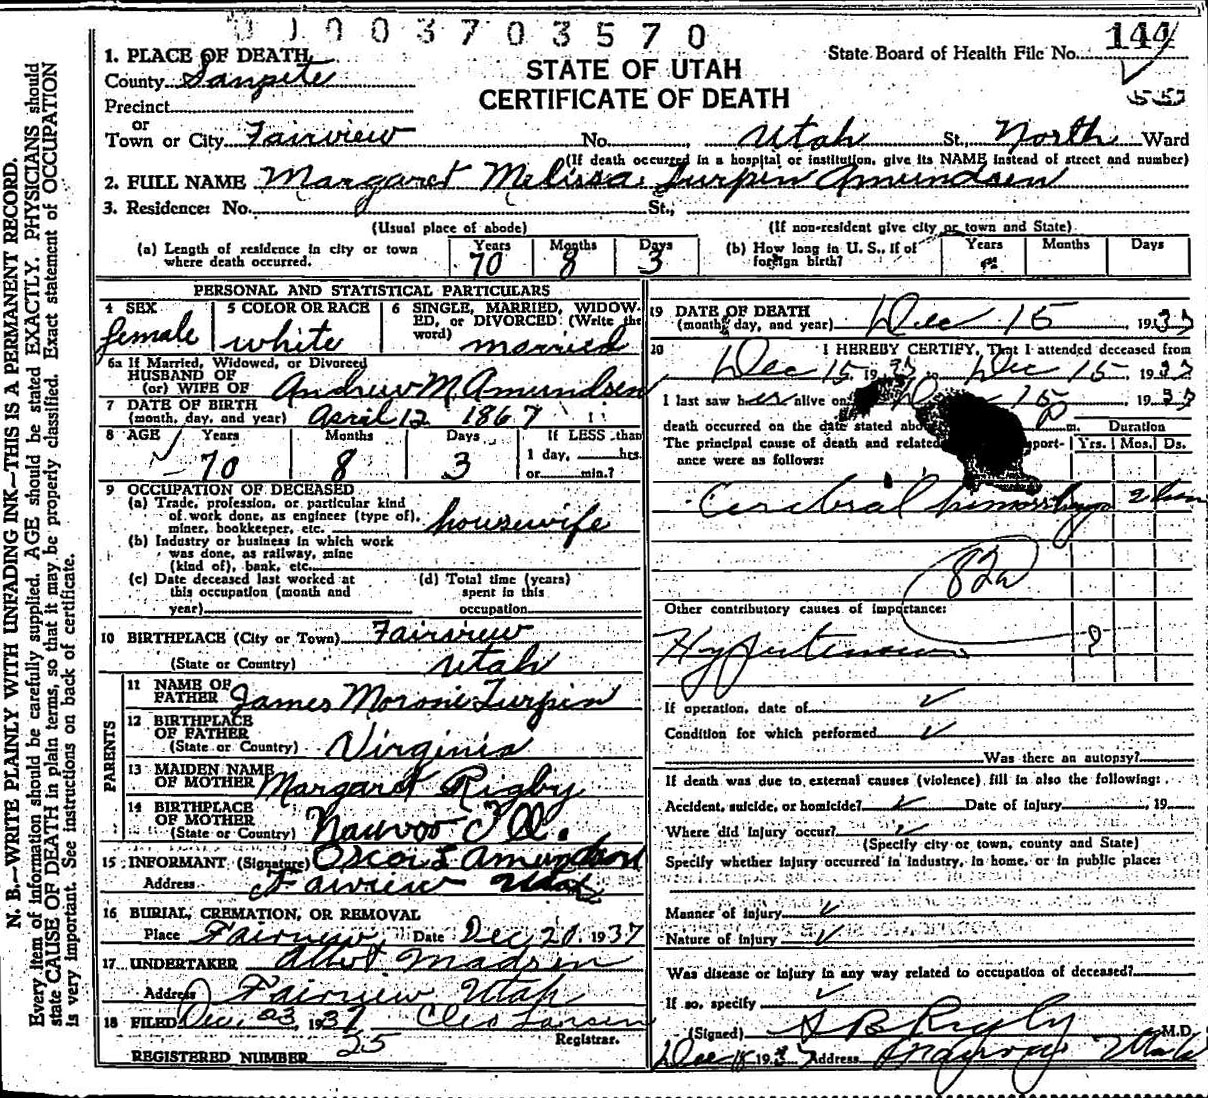 0 1 0 0 3 7 0 3 5 7 0
State Board of Health File No. 144
STATE OF UTAH
CERTIFICATE OF DEATH
1. PLACE OF DEATH
County Sanpete
Precinct
or
Town or City Fairview No. Utah St., North Ward
(If death occurred in a hospital or institution, give its NAME instead of street and number)
2. FULL NAME Margaret Melissa Turpin Amundsen
3. Residence: No. St.,
(Usual place of abode) (If non-resident give city or town and State)
(a) Length of residence in city or town where death occurred. Years 70 Months 8 Days 3
(b) How long in U. S., if of foreign birth? Years Months Days
PERSONAL AND STATISTICAL PARTICULARS
4 SEX female
5 COLOR OR RACE white
6 SINGLE, MARRIED, WIDOWED, or DIVORCED (Write the word) married
6a If Married, Widowed, or Divorced
HUSBAND OF
(or) WIFE OF Andrew M. Amundsen
7 DATE OF BIRTH
(month, day, and year) April 12 1867
8 AGE Years 70 Months 8 Days 3 If LESS than
1 day, hrs.
or min.?
9 OCCUPATION OF DECEASED
(a) Trade, profession, or particular kind
of work done, as engineer (type of),
miner, bookkeeper, etc. housewife
(b) Industry or business in which work
was done, as railway, mine
(kind of), bank, etc.
(c) Date deceased last worked at
this occupation (month and
year)
(d) Total time (years)
spent in this
occupation
10 BIRTHPLACE (City or Town) Fairview
(State or Country) Utah
PARENTS
11 NAME OF
FATHER James Moroni Turpin
12 BIRTHPLACE
OF FATHER
(State or Country) Virginia
13 MAIDEN NAME
OF MOTHER Margaret Rigby
14 BIRTHPLACE
OF MOTHER
(State or Country) Nauvoo Ill.
15 INFORMANT (Signature) Oscar L Amundsen
Address Fairview Utah
16 BURIAL, CREMATION, OR REMOVAL
Place Fairview Date Dec 20 1937
17 UNDERTAKER Albert Madsen
Address Fairview Utah
18 FILED Dec. 23, 1937 Cleo Larsen
Registrar.
REGISTERED NUMBER 25
19 DATE OF DEATH
(month, day, and year) Dec 15 1937
20 I HEREBY CERTIFY, That I attended deceased from
Dec 15, 1937 to Dec 15, 1937
I last saw her alive on 15, 1937
death occurred on the date stated P m. Duration
The principal cause of death and related Yrs. Mos. Ds.
ance were as follows:
Cerebral hemorrhage
82a
Other contributory causes of importance:
Hypertension ?
If operation, date of
Condition for which performed
Was there an autopsy?
If death was due to external causes (violence) fill in also the following:
Accident, suicide, or homicide? Date of injury , 19
Where did injury occur?
(Specify city or town, county and State)
Specify whether injury occurred in industry, in home, or in public place:
Manner of injury
Nature of injury
Was disease or injury in any way related to occupation of deceased?
If so, specify
(Signed) A B Rigby M.D.
Dec 18 1937 Address Utah
N. B.—WRITE PLAINLY WITH UNFADING INK—THIS IS A PERMANENT RECORD.
Every item of information should be carefully supplied. AGE should be stated EXACTLY. PHYSICIANS should
state CAUSE OF DEATH in plain terms, so that it may be properly classified. Exact statement of OCCUPATION
is very important. See instructions on back of certificate.